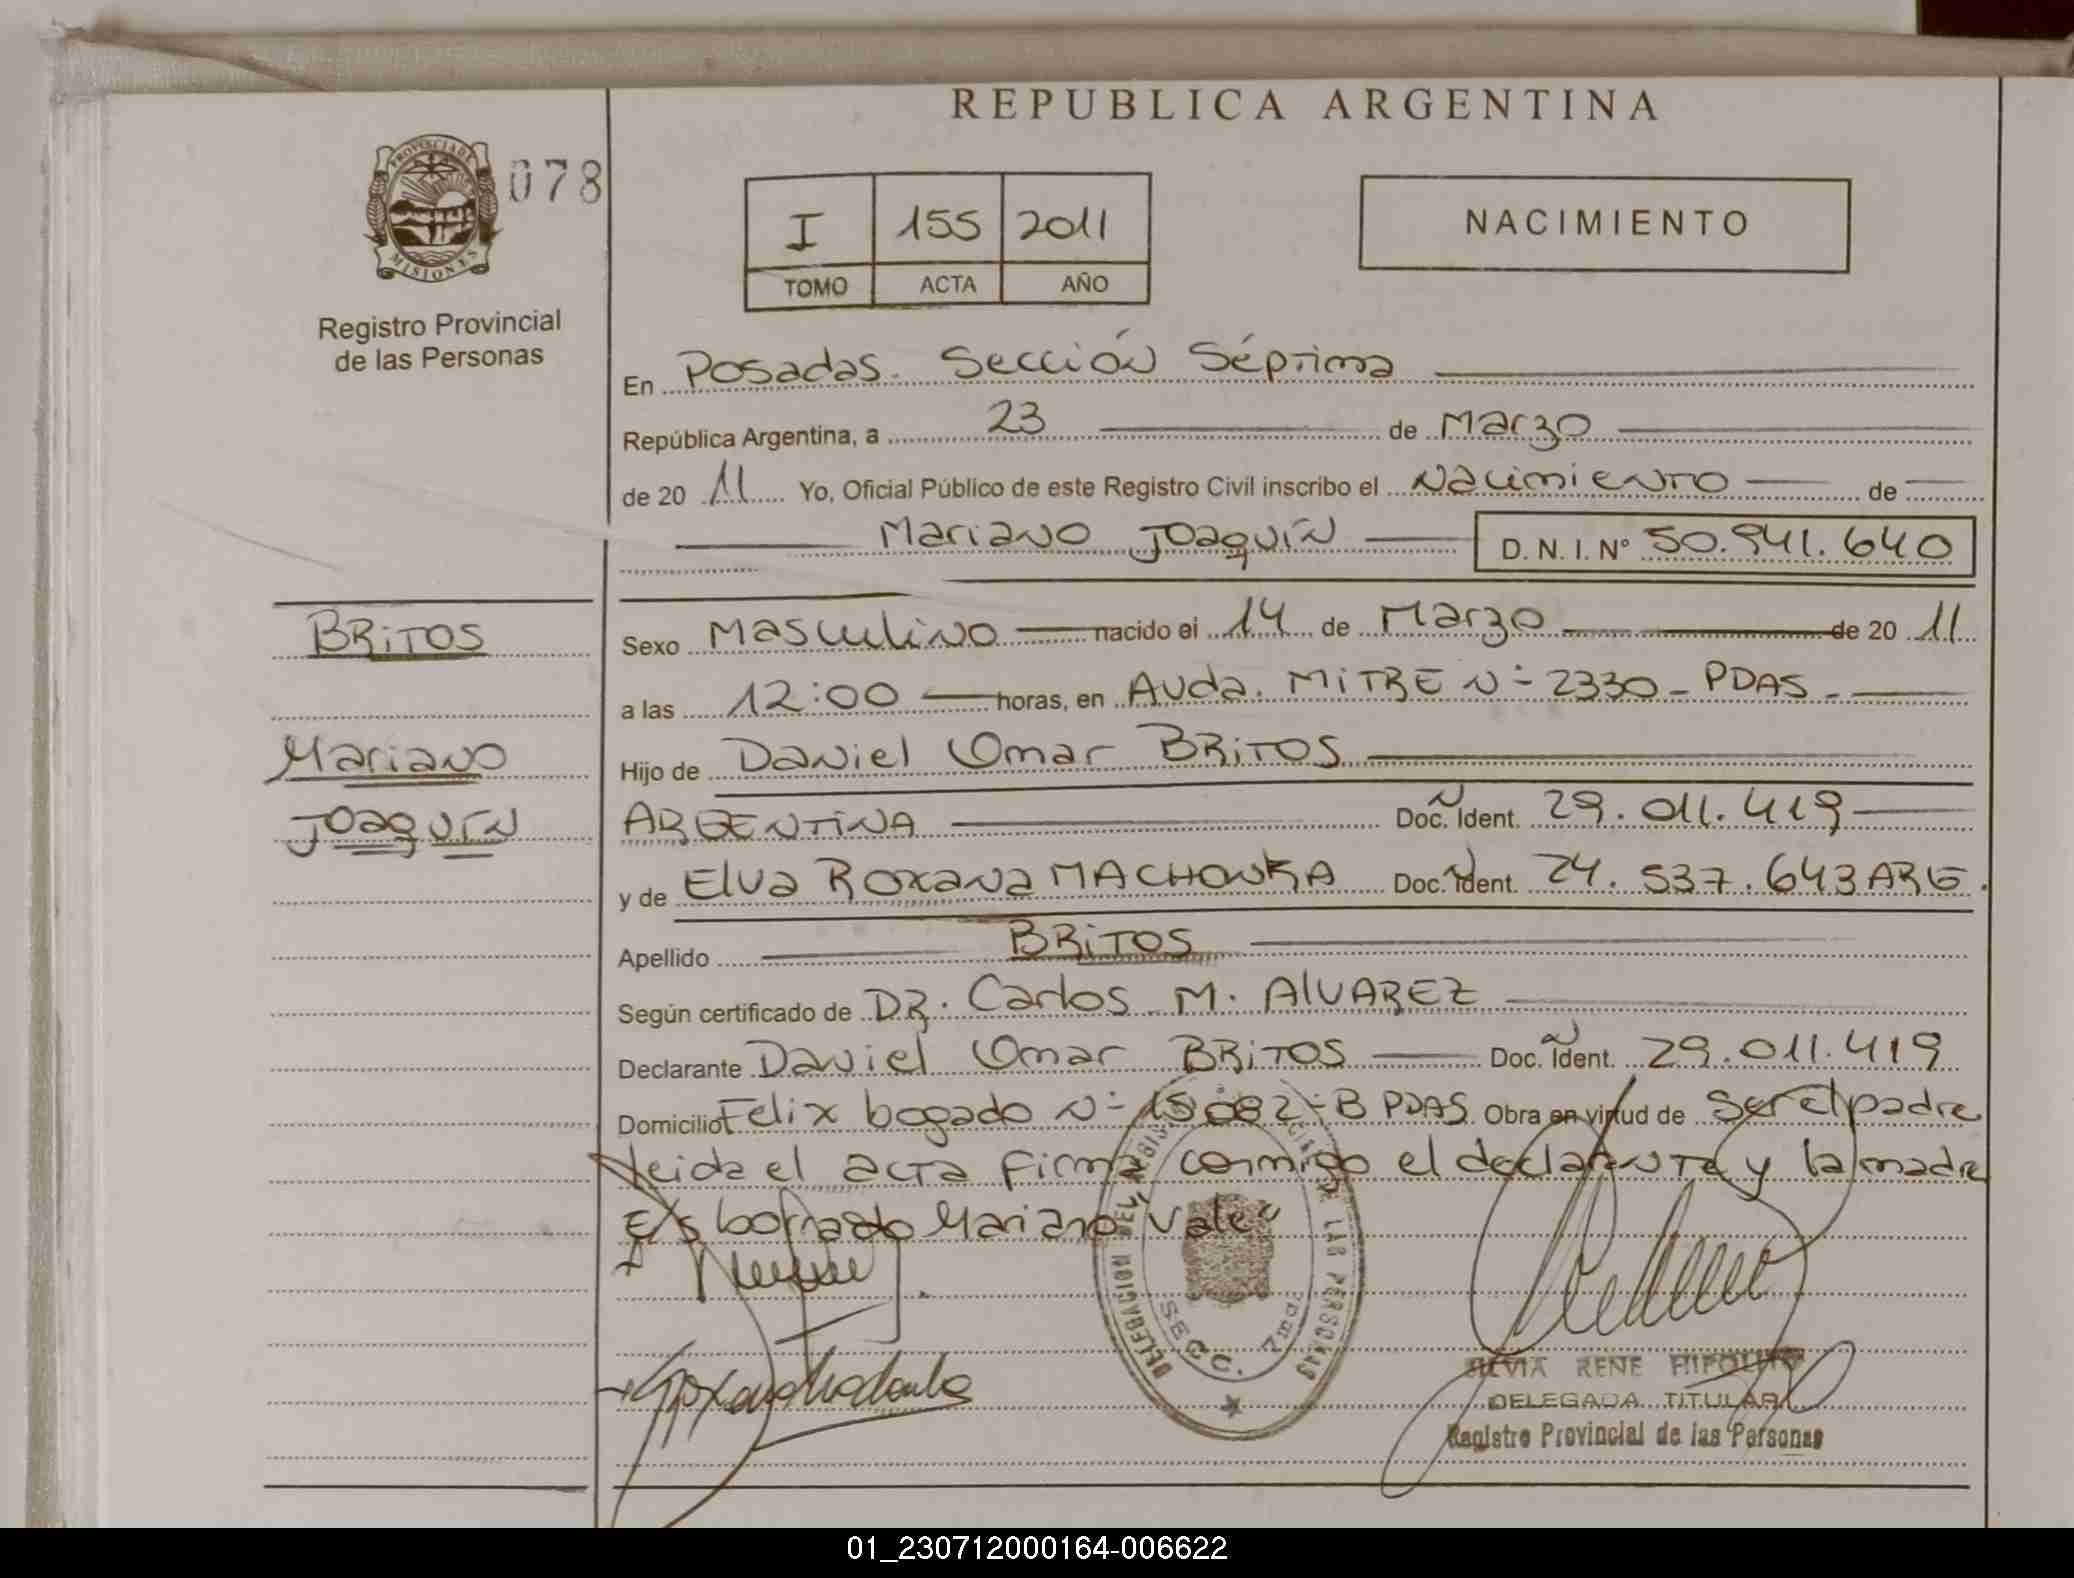 REPUBLICA ARGENTINA
PROVINCIA DE
MISIONES
078
Registro Provincial
de las Personas
I 155 2011
TOMO ACTA AÑO
NACIMIENTO
En Posadas. Sección Séptima
República Argentina, a 23 de Marzo
de 20 11 Yo, Oficial Público de este Registro Civil inscribo el Nacimiento de
Mariano Joaquín D. N. I. Nº 50.941.640
BRITOS
Mariano
Joaquín
Sexo Masculino nacido el 14 de Marzo de 20 11
a las 12:00 horas, en Avda. MITRE N- 2330 - PDAS -
Hijo de Daniel Omar BRITOS
ARGENTINA Doc. Ident. 29.011.419
y de Elva Roxana MACHONKA Doc. Ident. 24.537.643 ARG.
Apellido BRITOS
Según certificado de DR. Carlos M. ALVAREZ
Declarante Daniel Omar BRITOS Doc. Ident. 29.011.419
Domicilio Felix bogado N- 15082-B PDAS. Obra en virtud de ser el padre
leida el acta firma conmigo el declarante y la madre
E/s borrado Mariano Vale
DELEGACION DEL REGISTRO DE LAS PERSONAS
SECC. 7ma.
SILVIA RENE HIPOLITO
DELEGADA TITULAR
Registro Provincial de las Personas
01_230712000164-006622